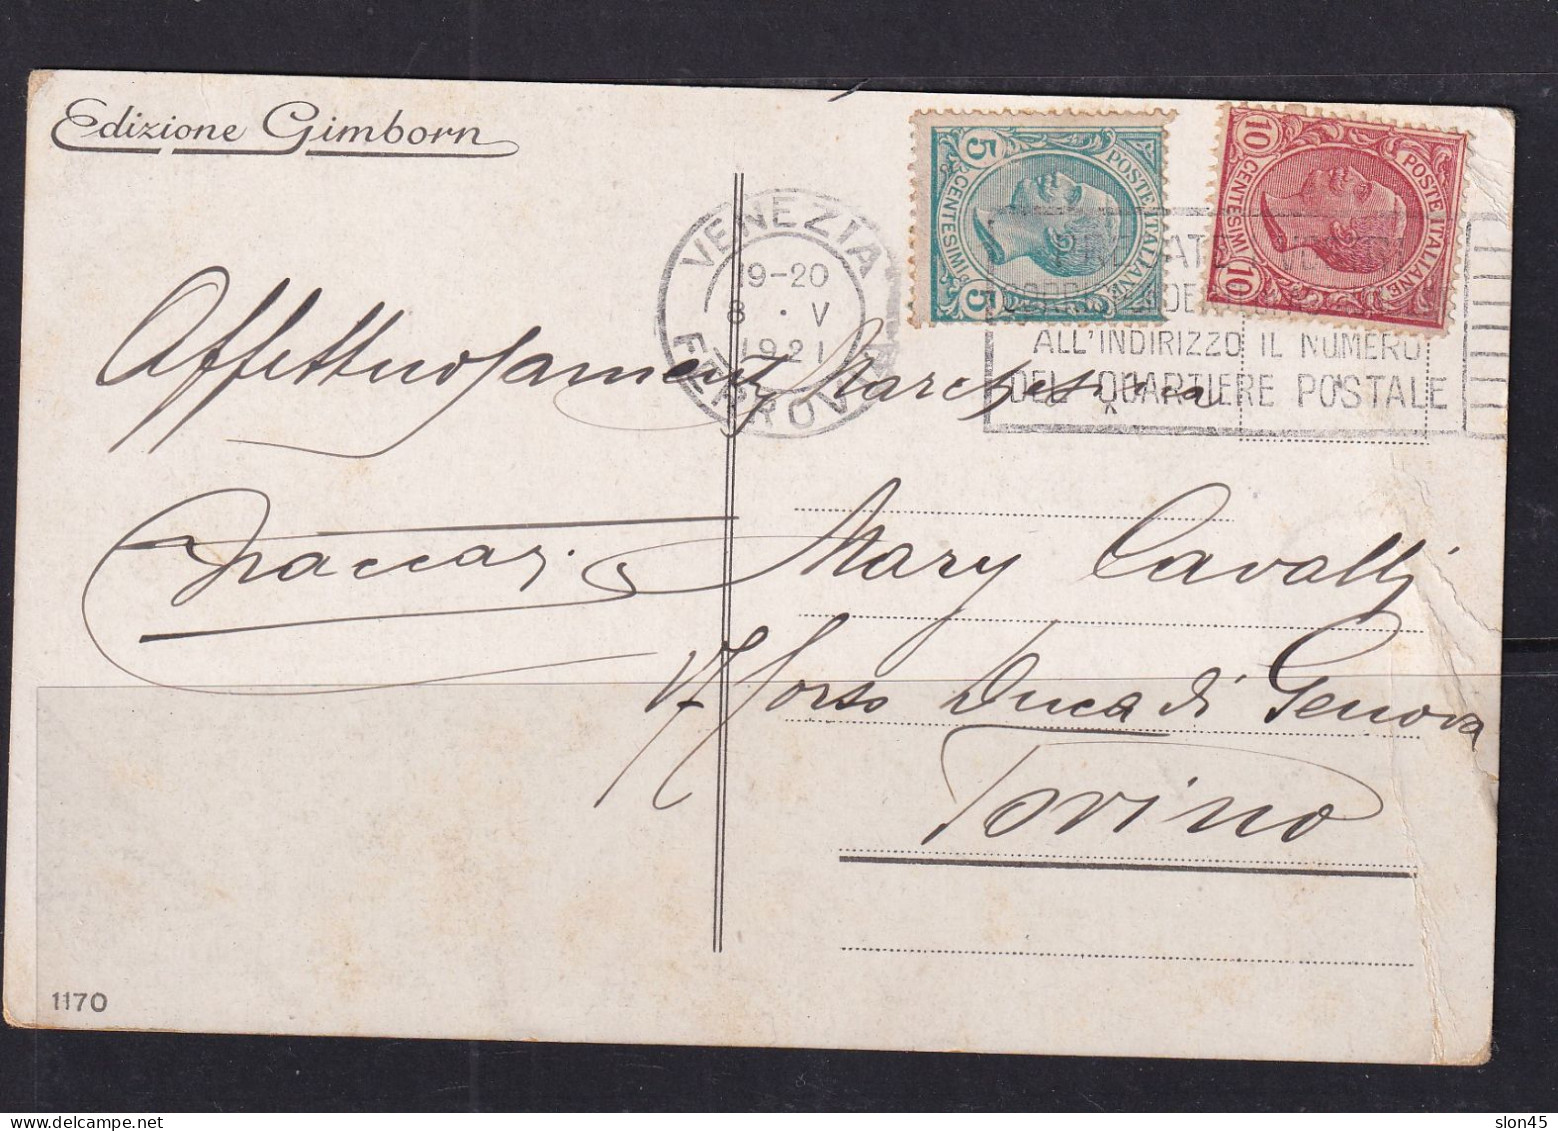 Edizione Gimborn
VENEZIA
19-20
8 · V
1921
FERROVIA
5 POSTE ITALIANE 5
CENTESIMI
10 POSTE ITALIANE 10
CENTESIMI
ALL'INDIRIZZO IL NUMERO
DEL QUARTIERE POSTALE
Affettuosamente
Mary Cavalli
Corso Duca di Genova
Torino
1170
slon45